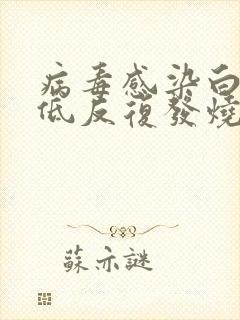 病毒感染白
低反復發燒
蘇亦謎